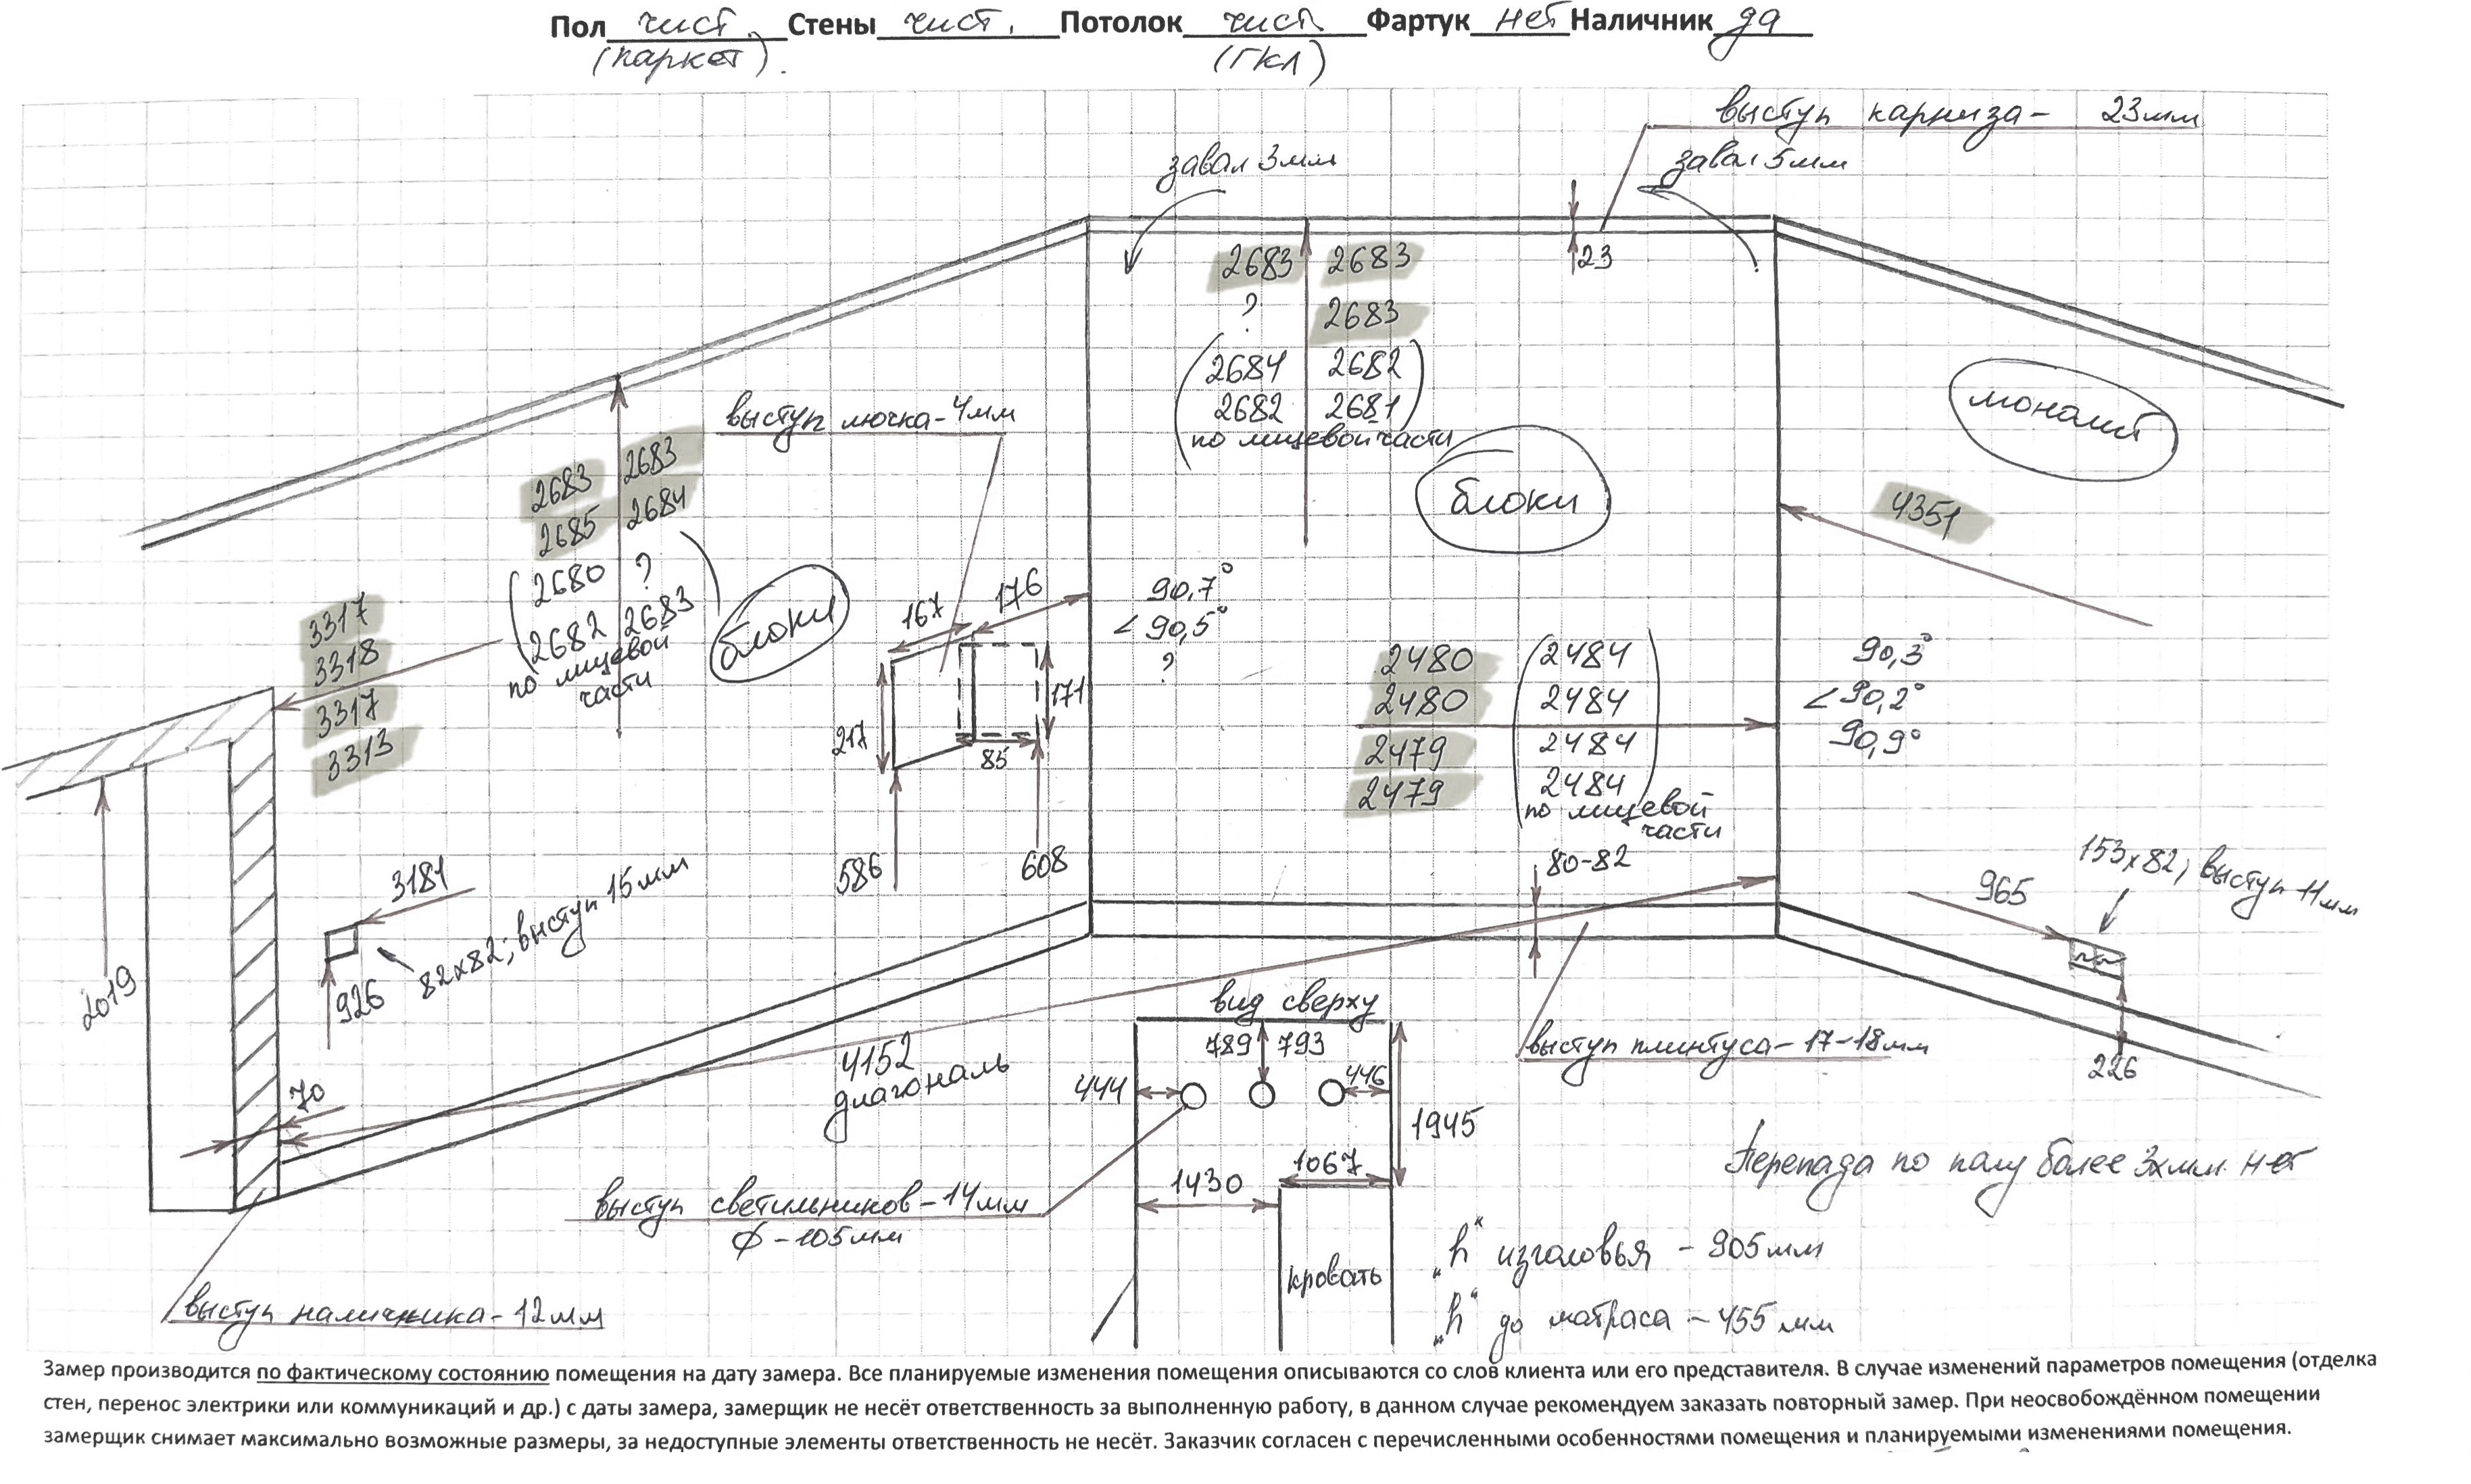 Пол чист. Стены чист. Потолок чист. Фартук нет Наличник да
(паркет). (ГКЛ)
выступ карниза - 23мм
завал 3мм
завал 5мм
23
2683 2683
? 2683
(2684 2682
2682 2681)
по лицевой части
монолит
блоки
4351
выступ лючка - 4мм
2683 2683
2685 2684
(2680 ?
2682 2683)
по лицевой
части
блоки
3317
3318
3317
3313
167 176
217 171
85
586 608
90,7°
< 90,5°
?
2480 (2484
2480 2484
2479 2484
2479 2484)
по лицевой
части
90,3°
< 90,2°
90,9°
80-82
153х82, выступ 11мм
965
226
3181
82х82; выступ 15мм
926
2019
70
4152
диагональ
вид сверху
789 793
444 446
1945
1067
1430
кровать
выступ плинтуса - 17-18мм
выступ светильников - 14мм
ф - 105мм
выступ наличника - 12мм
Перепада по полу более 3х мм. нет
„h“ изголовья - 905мм
„h“ до матраса - 455мм
Замер производится по фактическому состоянию помещения на дату замера. Все планируемые изменения помещения описываются со слов клиента или его представителя. В случае изменений параметров помещения (отделка
стен, перенос электрики или коммуникаций и др.) с даты замера, замерщик не несёт ответственность за выполненную работу, в данном случае рекомендуем заказать повторный замер. При неосвобождённом помещении
замерщик снимает максимально возможные размеры, за недоступные элементы ответственность не несёт. Заказчик согласен с перечисленными особенностями помещения и планируемыми изменениями помещения.